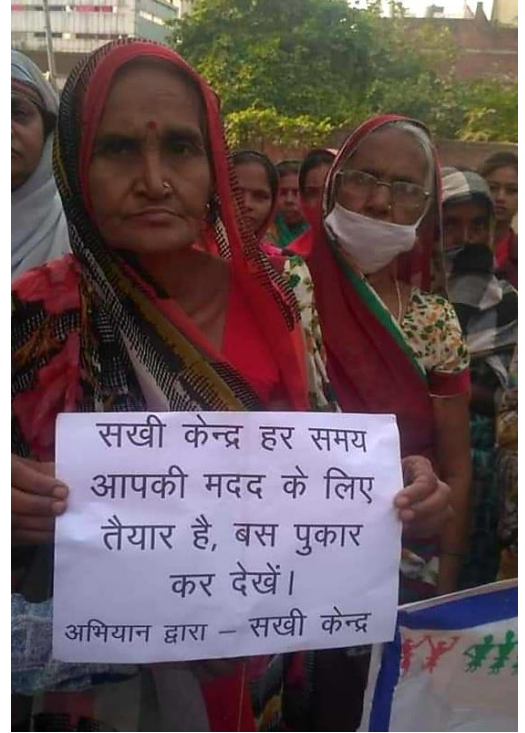 सखी केन्द्र हर समय
आपकी मदद के लिए
तैयार है, बस पुकार
कर देखें।
अभियान द्वारा – सखी केन्द्र